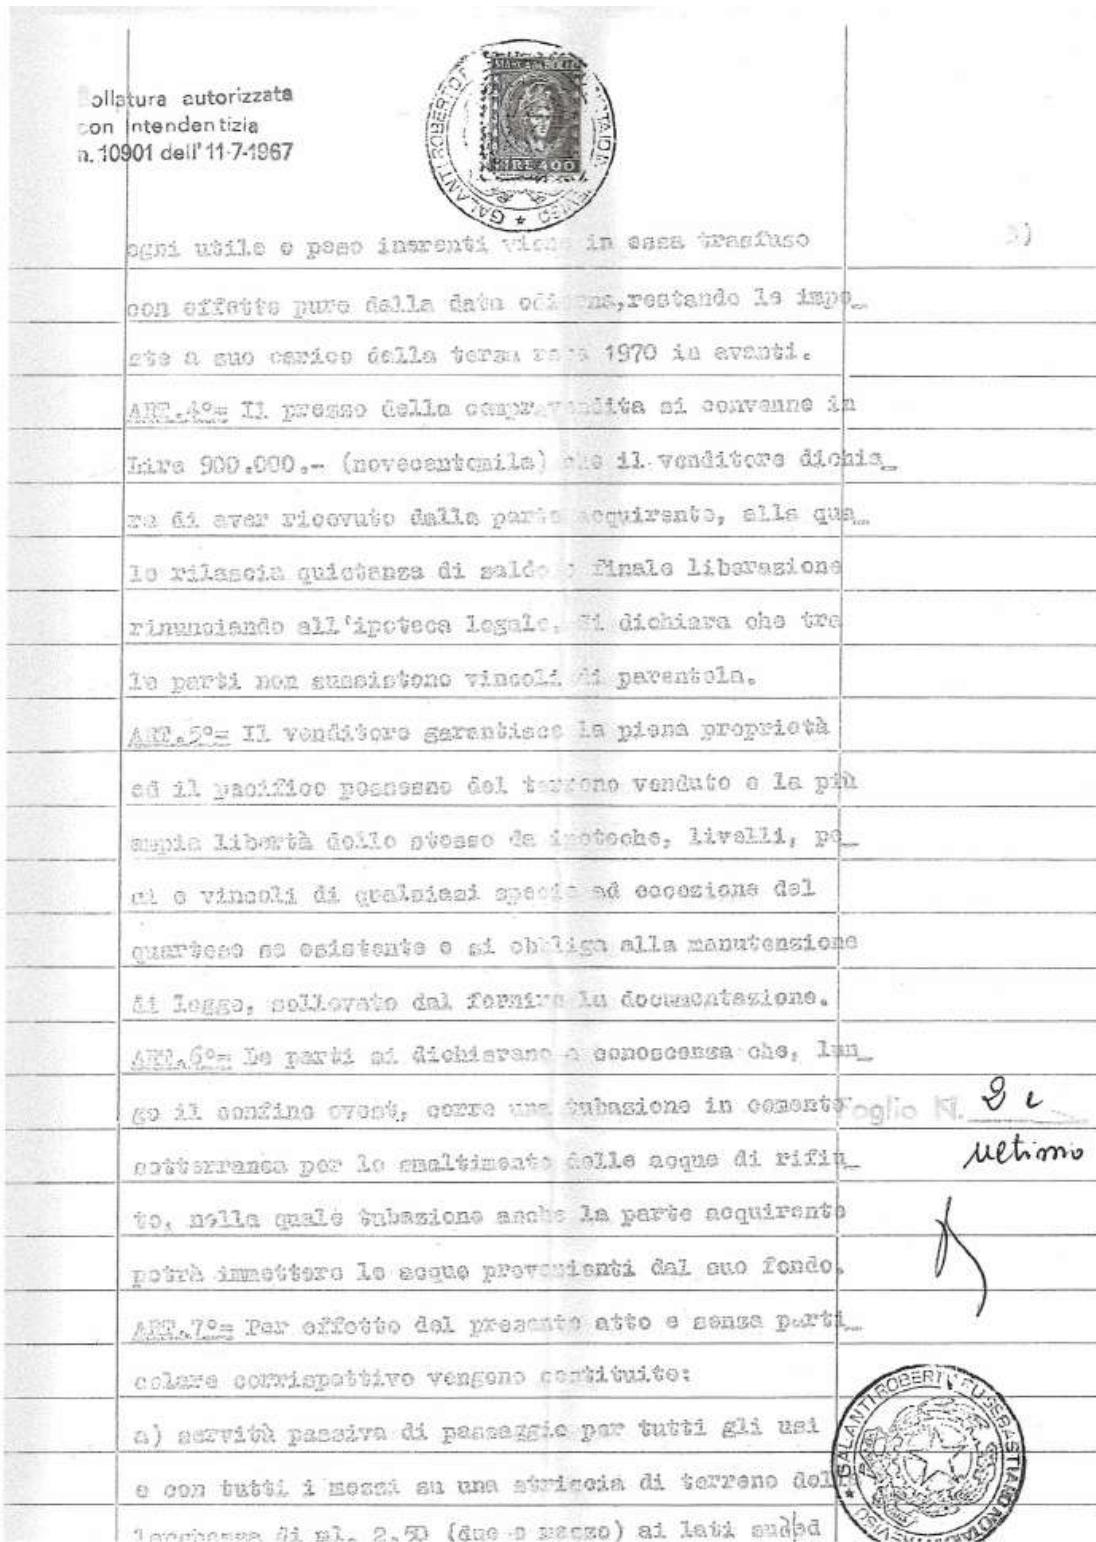 Bollatura autorizzata
con Intendentizia
n. 10901 dell'11-7-1967
MARCA DA BOLLO
LIRE 400
GALANTI ROBERTO
ogni utile e peso inerenti viene in essa trasfuso
3)
con effetto pure dalla data odierna,restando le impo_
ste a suo carico dalla terza rata 1970 in avanti.
ART.4°= Il prezzo della compravendita si convenne in
Lire 900.000.- (novecentomila) che il venditore dichia_
ra di aver ricevuto dalla parte acquirente, alla qua_
le rilascia quietanza di saldo e finale liberazione
rinunciando all'ipoteca legale. Si dichiara che tra
le parti non sussistono vincoli di parentela.
ART.5°= Il venditore garantisce la piena proprietà
ed il pacifico possesso del terreno venduto e la più
ampia libertà dello stesso da ipoteche, livelli, pe_
si e vincoli di qualsiasi specie ad eccezione del
quartese se esistente e si obbliga alla manutenzione
di legge, sollevato dal fornire la documentazione.
ART.6°= Le parti si dichiarano a conoscenza che, lun_
go il confine ovest, corre una tubazione in cemento
Foglio N. 2 e
sotterranea per lo smaltimento delle acque di rifiu_
ultimo
to, nella quale tubazione anche la parte acquirente
potrà immettere le acque provenienti dal suo fondo.
ART.7°= Per effetto del presente atto e senza parti_
colare corrispettivo vengono costituite:
a) servitù passiva di passaggio per tutti gli usi
e con tutti i mezzi su una striscia di terreno della
larghezza di ml. 2,50 (due e mezzo) ai lati sud ed
GALANTI ROBERTO FU SEBASTIANO NOTAIO IN TREVISO